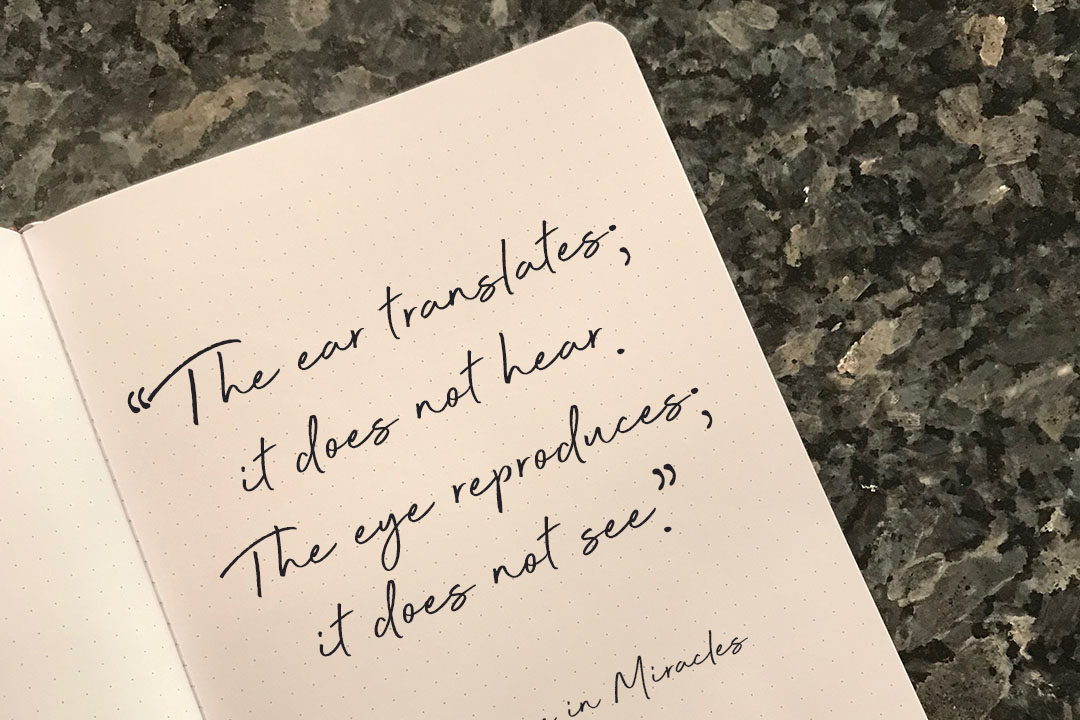 “The ear translates;
it does not hear.
The eye reproduces;
it does not see”.
in Miracles